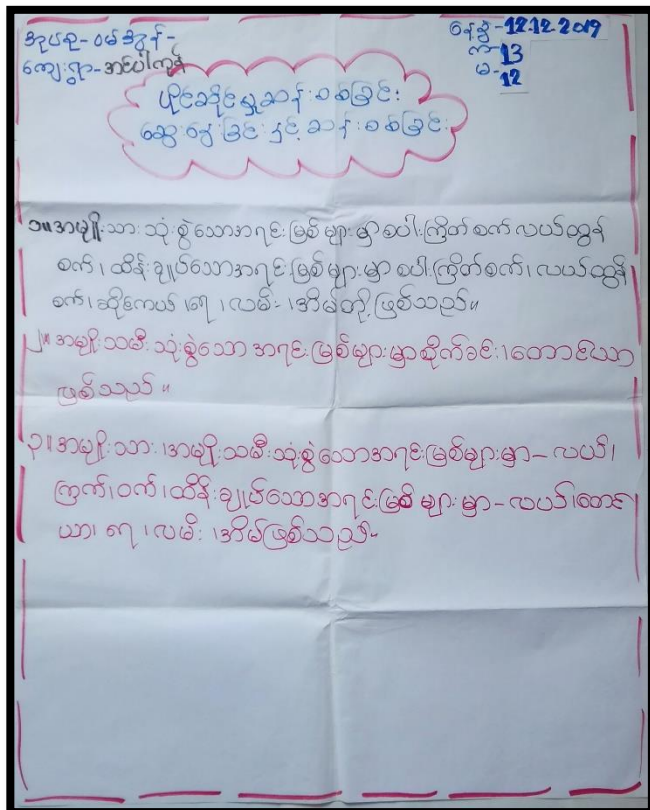 အုပစု-ဝမ်အွန်-
ကျေးရွာ-အင်ပါကွန်
နေ့စွဲ-12.12.2019
ကျ-13
မ-12
ပိုင်ဆိုင်မှုဆန်းစစ်ခြင်း
ဆွေးနွေးခြင်းနှင့်ဆန်းစစ်ခြင်း
၁။အမျိုးသားသုံးစွဲသောအရင်းမြစ်များမှာစပါးကြိတ်စက်လယ်ထွန်
စက်၊ထိန်းချုပ်သောအရင်းမြစ်များမှာစပါးကြိတ်စက်၊လယ်ထွန်
စက်၊ဆိုင်ကယ်၊ရေ၊လမ်း၊အိမ်တို့ဖြစ်သည်။
၂။အမျိုးသမီးသုံးစွဲသောအရင်းမြစ်များမှာစိုက်ခင်း၊တောင်ယာ
ဖြစ်သည်။
၃။အမျိုးသား၊အမျိုးသမီးသုံးစွဲသောအရင်းမြစ်များမှာ-လယ်၊
ကြက်၊ဝက်၊ထိန်းချုပ်သောအရင်းမြစ်များမှာ-လယ်၊တောင်
ယာ၊ရေ၊လမ်း၊အိမ်ဖြစ်သည်။